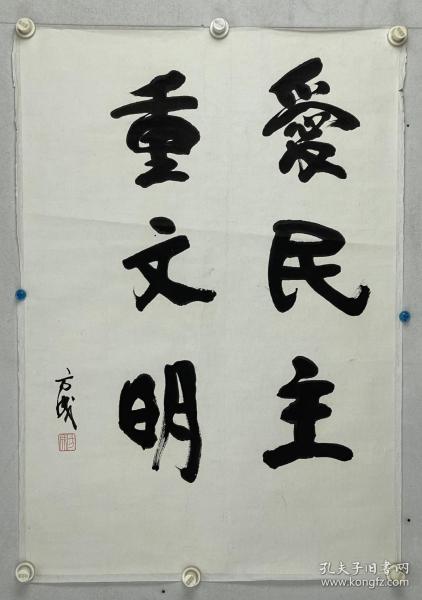 愛民主
重文明
方成
孔夫子旧书网
www.kongfz.com